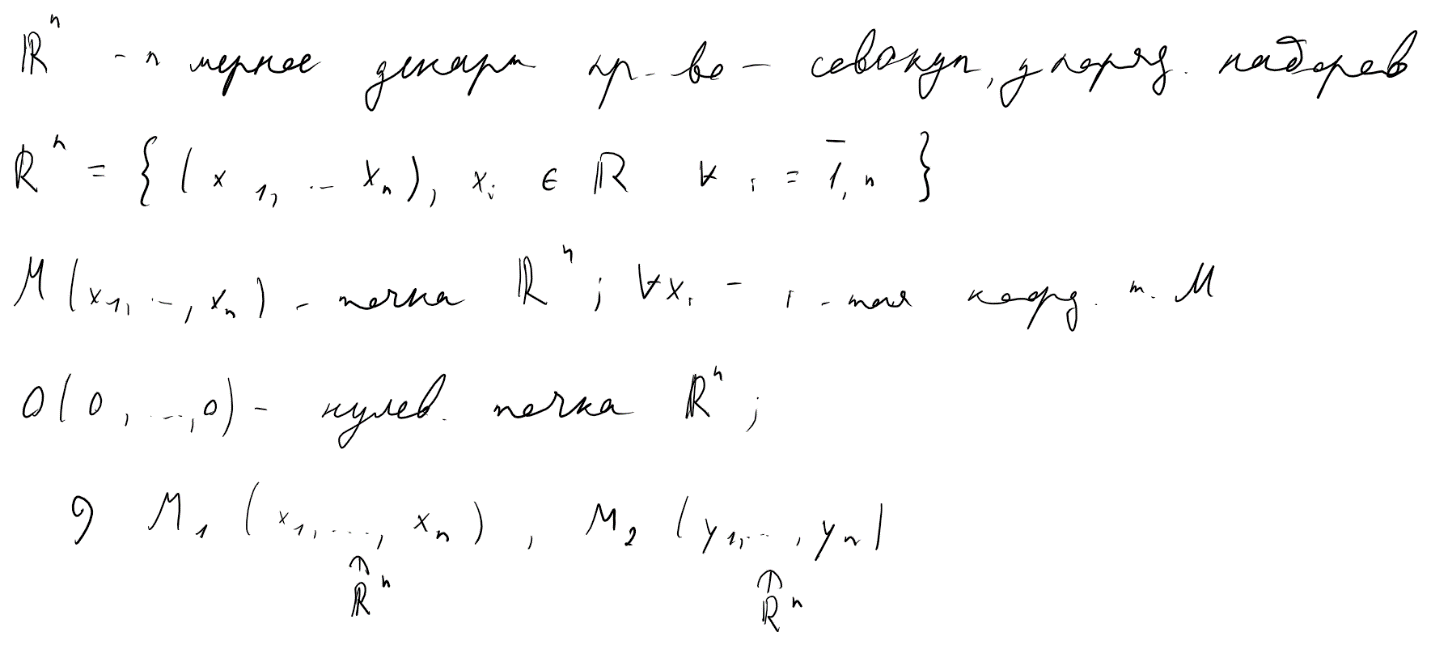 ℝⁿ - n мерное декарт пр-во - совокуп, упоряд. наборов
ℝⁿ = { (x₁, ... xₙ), xᵢ ∈ ℝ ∀ i = 1,n }
M(x₁, ..., xₙ) - точка ℝⁿ ; ∀xᵢ - i - тая коорд. т. M
O(0, ..., 0) - нулев. точка ℝⁿ ;
M₁ (x₁, ..., xₙ) , M₂ (y₁, ..., yₙ)
ℝⁿ ℝⁿ